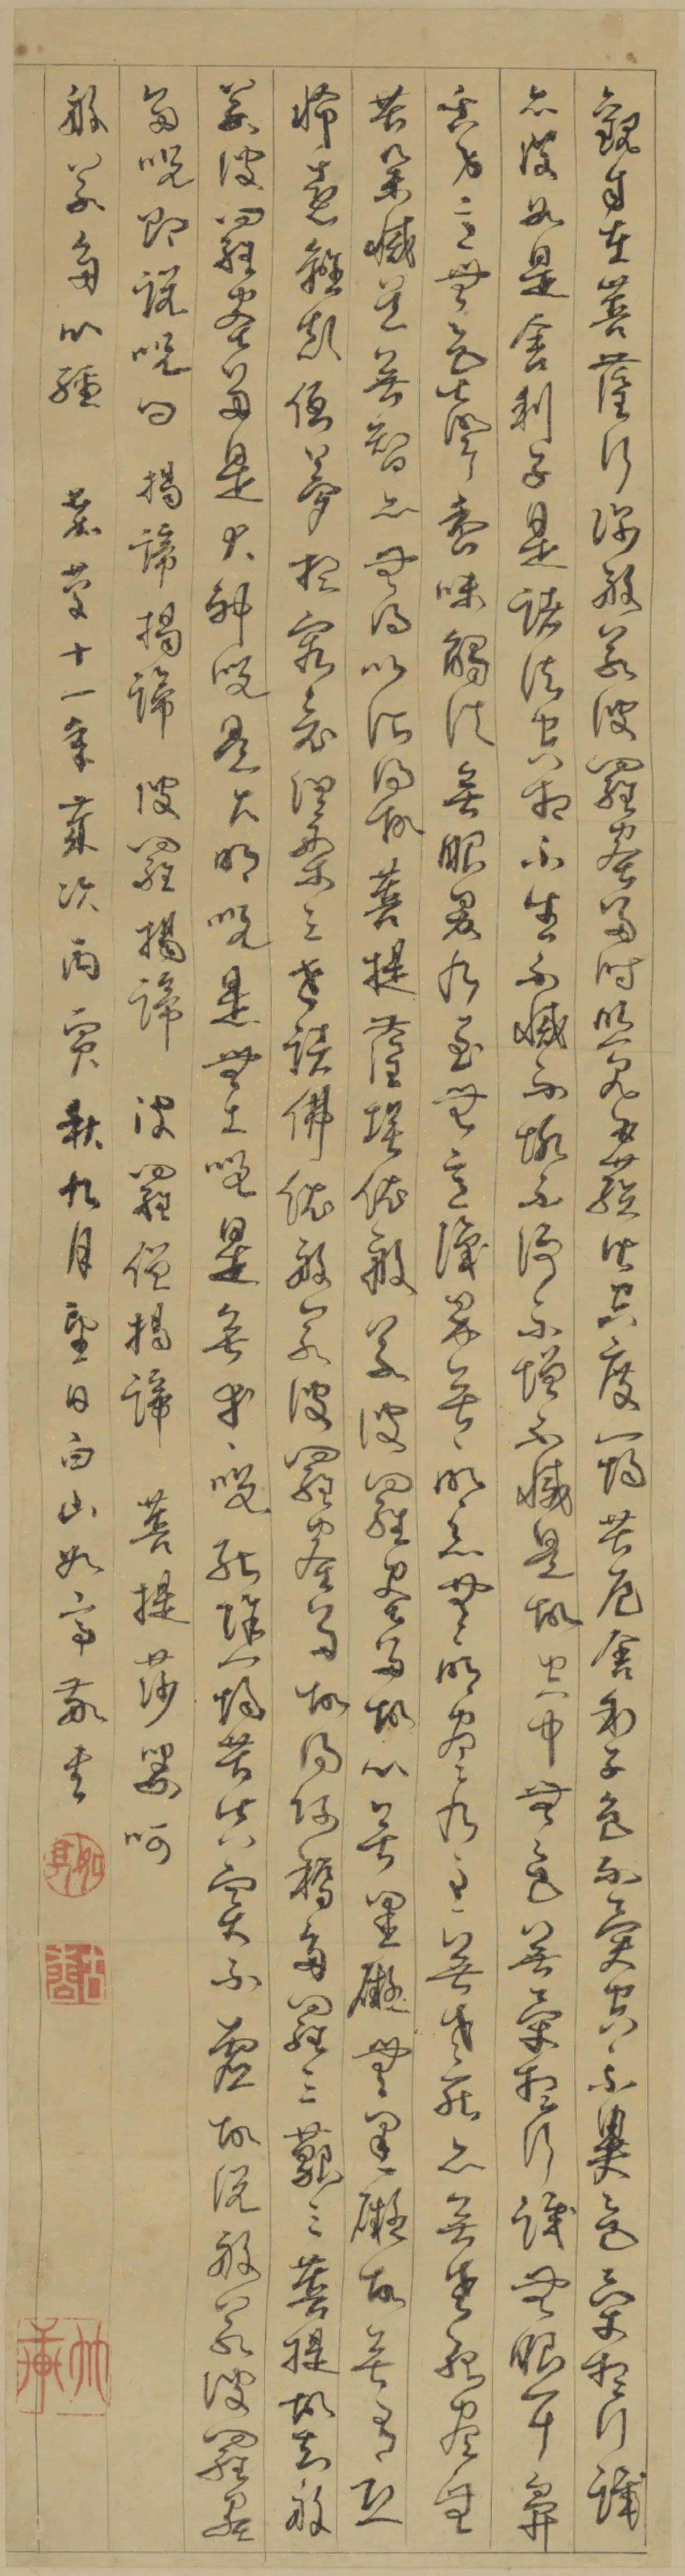 觀自在菩薩行深般若波羅蜜多時照見五蘊皆空度一切苦厄舍利子色不異空〻不異色受想行識
亦復如是舍利子是諸法空相不生不滅不垢不淨不增不減是故空中無色無受想行識無眼耳鼻
舌身意無色聲香味觸法無眼界乃至無意識界無〻明亦無〻明盡乃至無老死亦無老死盡無
苦集滅道無智亦無得以所得故菩提薩埵依般若波羅蜜多故心無罣礙無罣礙故無有恐
怖遠離顛倒夢想究竟涅槃三世諸佛依般若波羅蜜多故得阿耨多羅三藐三菩提故知般
若波羅蜜多是大神呪是大明呪是無上呪是無等〻呪能除一切苦真實不虛故說般若波羅蜜
多呪即說呪曰 揭諦揭諦 波羅揭諦 波羅僧揭諦 菩提莎婆呵
般若多心經 嘉慶十一年歲次丙寅秋九月望日白山如亭敬書